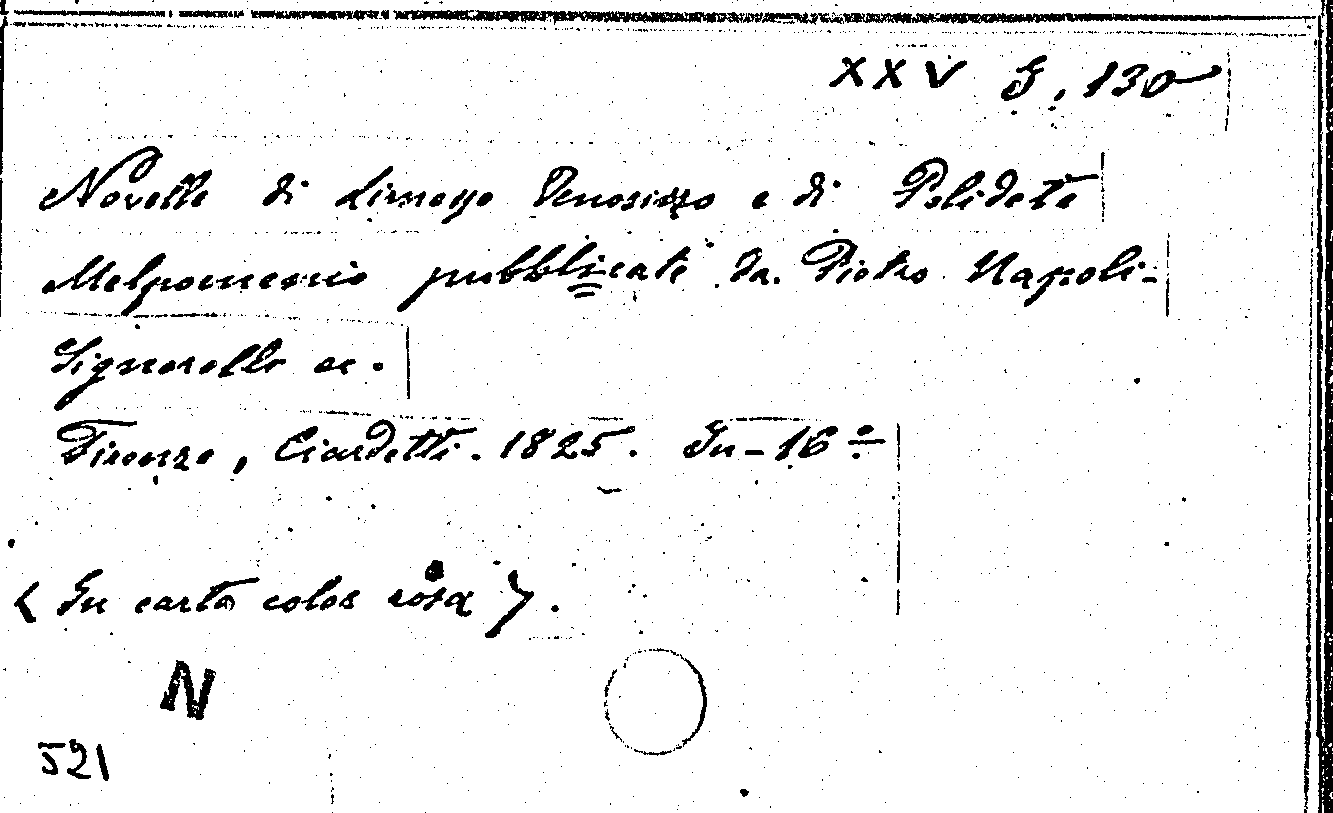 XXV G, 130
Novelle di Limoszo Venosizzo e di Polidete
Melpomenio pubblicate da Pietro Napoli-
Signorelli ec.
Firenze, Ciardetti. 1825. In-16º
(In carta color rosa).
N
521